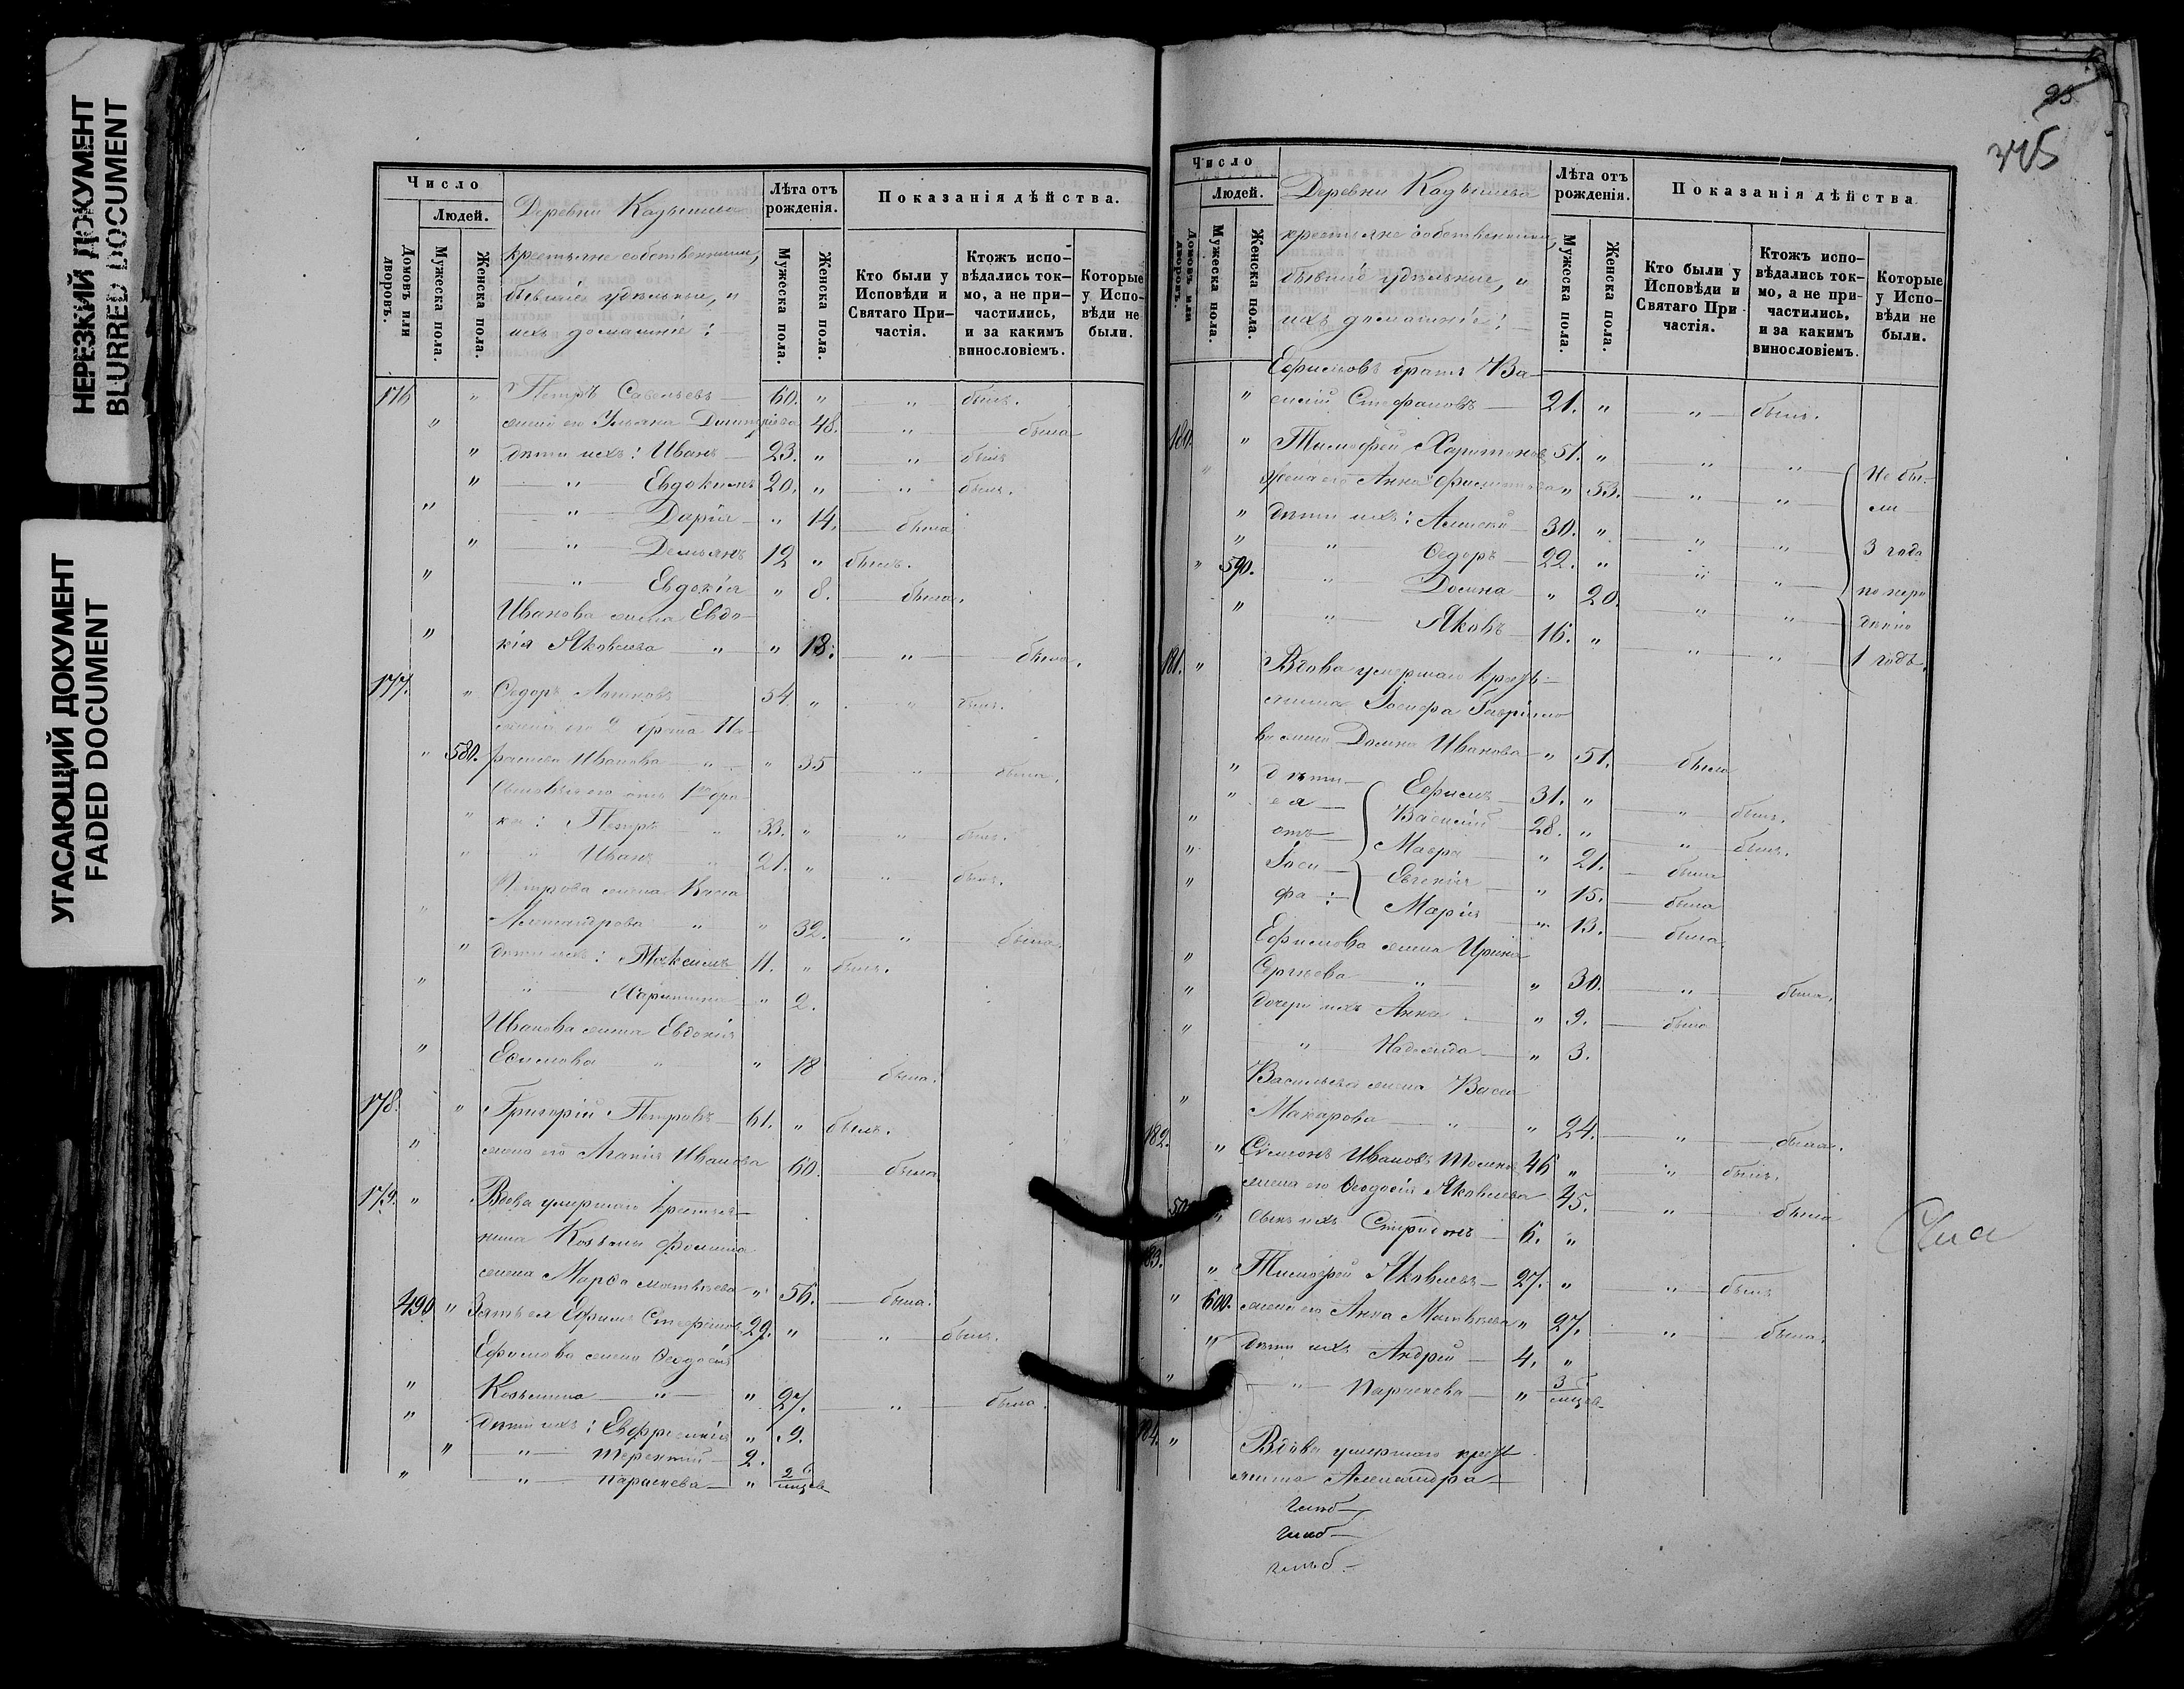 НЕРЕЗКИЙ ДОКУМЕНТ
BLURRED DOCUMENT
УГАСАЮЩИЙ ДОКУМЕНТ
FADED DOCUMENT
Число
Людей.
Домовъ или дворовъ.
Мужеска пола.
Женска пола.
Деревни Кадышева
крестьяне собственники,
бывшіе удѣльные, и
ихъ домашніе:
Лѣта отъ рожденія.
Мужеска пола.
Женска пола.
Показанія дѣйства.
Кто были у Исповѣди и Святаго Причастія.
Ктожъ исповѣдались токмо, а не причастились, и за какимъ винословіемъ.
Которые у Исповѣди не были.
176 " Петръ Савельевъ 60. " " былъ.
" жена его Ульяна Димитріева 48. " была
" дѣти ихъ: Иванъ 23. " " былъ
" " Евдокимъ 20. " " былъ.
" " Дарія " 14. была
" " Демьянъ 12 " былъ.
" " Евдокія " 8. была.
Иванова жена Евдо-
" кія Яковлева " " 18. " была.
177. " Ѳедоръ 54. " " былъ.
жена его 2 брака Па-
" 580. расковья Иванова " " 35 " была.
Сыновья его отъ 1го бра-
" ка: Петръ " 33. " " былъ.
" " Иванъ " 21. " " былъ.
Петрова жена Васса
" Александрова " " 32. " была.
" дѣти ихъ: Максимъ 11. " былъ.
" " Харитина " 2.
Иванова жена Евдокія
" Ефимова " " 18 была.
178. " Григорій Петровъ 61. " былъ.
" жена его Агапія Иванова 60. была
179. " Вдова умершаго крестья-
нина Козьмы Фомина
жена Марѳа Матвѣева " 56. была.
490 " Зять ея Ефимъ Стефановъ 29. " " былъ.
Ефимова жена Ѳеодосія
" Козьмина " " 27. " была.
" дѣти ихъ: Евфросинія " 9.
" " Терентій 2.
" " Параскева " 2 мцев
25
345
Число
Людей.
Домовъ или дворовъ.
Мужеска пола.
Женска пола.
Деревни Кадышева
крестьяне собственники,
бывшіе удѣльные, и
ихъ домашніе:
Лѣта отъ рожденія.
Мужеска пола.
Женска пола.
Показанія дѣйства
Кто были у Исповѣди и Святаго Причастія.
Ктожъ исповѣдались токмо, а не причастились, и за какимъ винословіемъ.
Которые у Исповѣди не были.
Ефимовъ братъ Ва-
" силій Стефановъ 21. " " былъ.
180. " Тимофей Харитоновъ 51. " " " Не бы-
" Жена его Анна " 53. " " ли
" дѣти ихъ: Алексѣй 30. " " " 3 года
" " Ѳедоръ 22. " " "
" 590. " Домна " 20. " "
" " Яковъ 16. " " " 1 годъ.
181. " Вдова умершаго крестья-
нина Іосифа Гаврило
ва жена Домна Иванова " 51. была
" дѣти Ефимъ 31. " " былъ.
" ея Василій 28. " " былъ.
" отъ Мавра " 21. была
" Іоси Евгенія " 15. была
" фа: Марія " 13. была.
Ефимова жена Ирина
" Сергѣева " " 30. " была.
" дочери ихъ Анна " 9. была
" " Надежда " 3.
Васильева жена Васса
" Макарова " " 24. " была.
182. " Симеонъ Ивановъ 46 " " былъ.
жена его Ѳеодосія Яковлева 45. " была
" сынъ ихъ Спиридонъ 6. "
183. " Тимофей Яковлевъ 27. " " былъ
" 600. жена его Анна Матвѣева " 27. " была.
" дѣти ихъ Андрей 4. "
" " Параскева " 3 мцев
184. " Вдова умершаго крестья
нина Александра